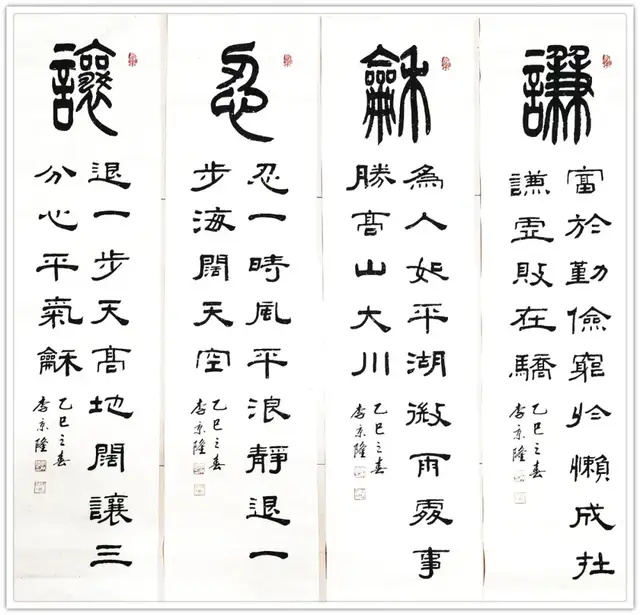 謙
富於勤儉窮於懶成扗
謙虛敗在驕
乙巳之春
李京隆
龢
為人如平湖微雨處事
勝高山大川
乙巳之春
李京隆
忍
忍一時風平浪靜退一
步海闊天空
乙巳之春
李京隆
讓
退一步天高地闊讓三
分心平氣龢
乙巳之春
李京隆